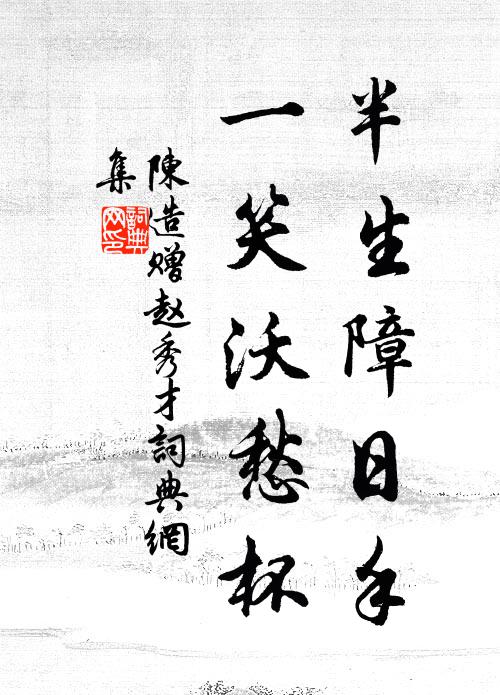 半生障日手
一笑沃愁杯
陳造贈赵秀才詞典網
集
詞典
网印